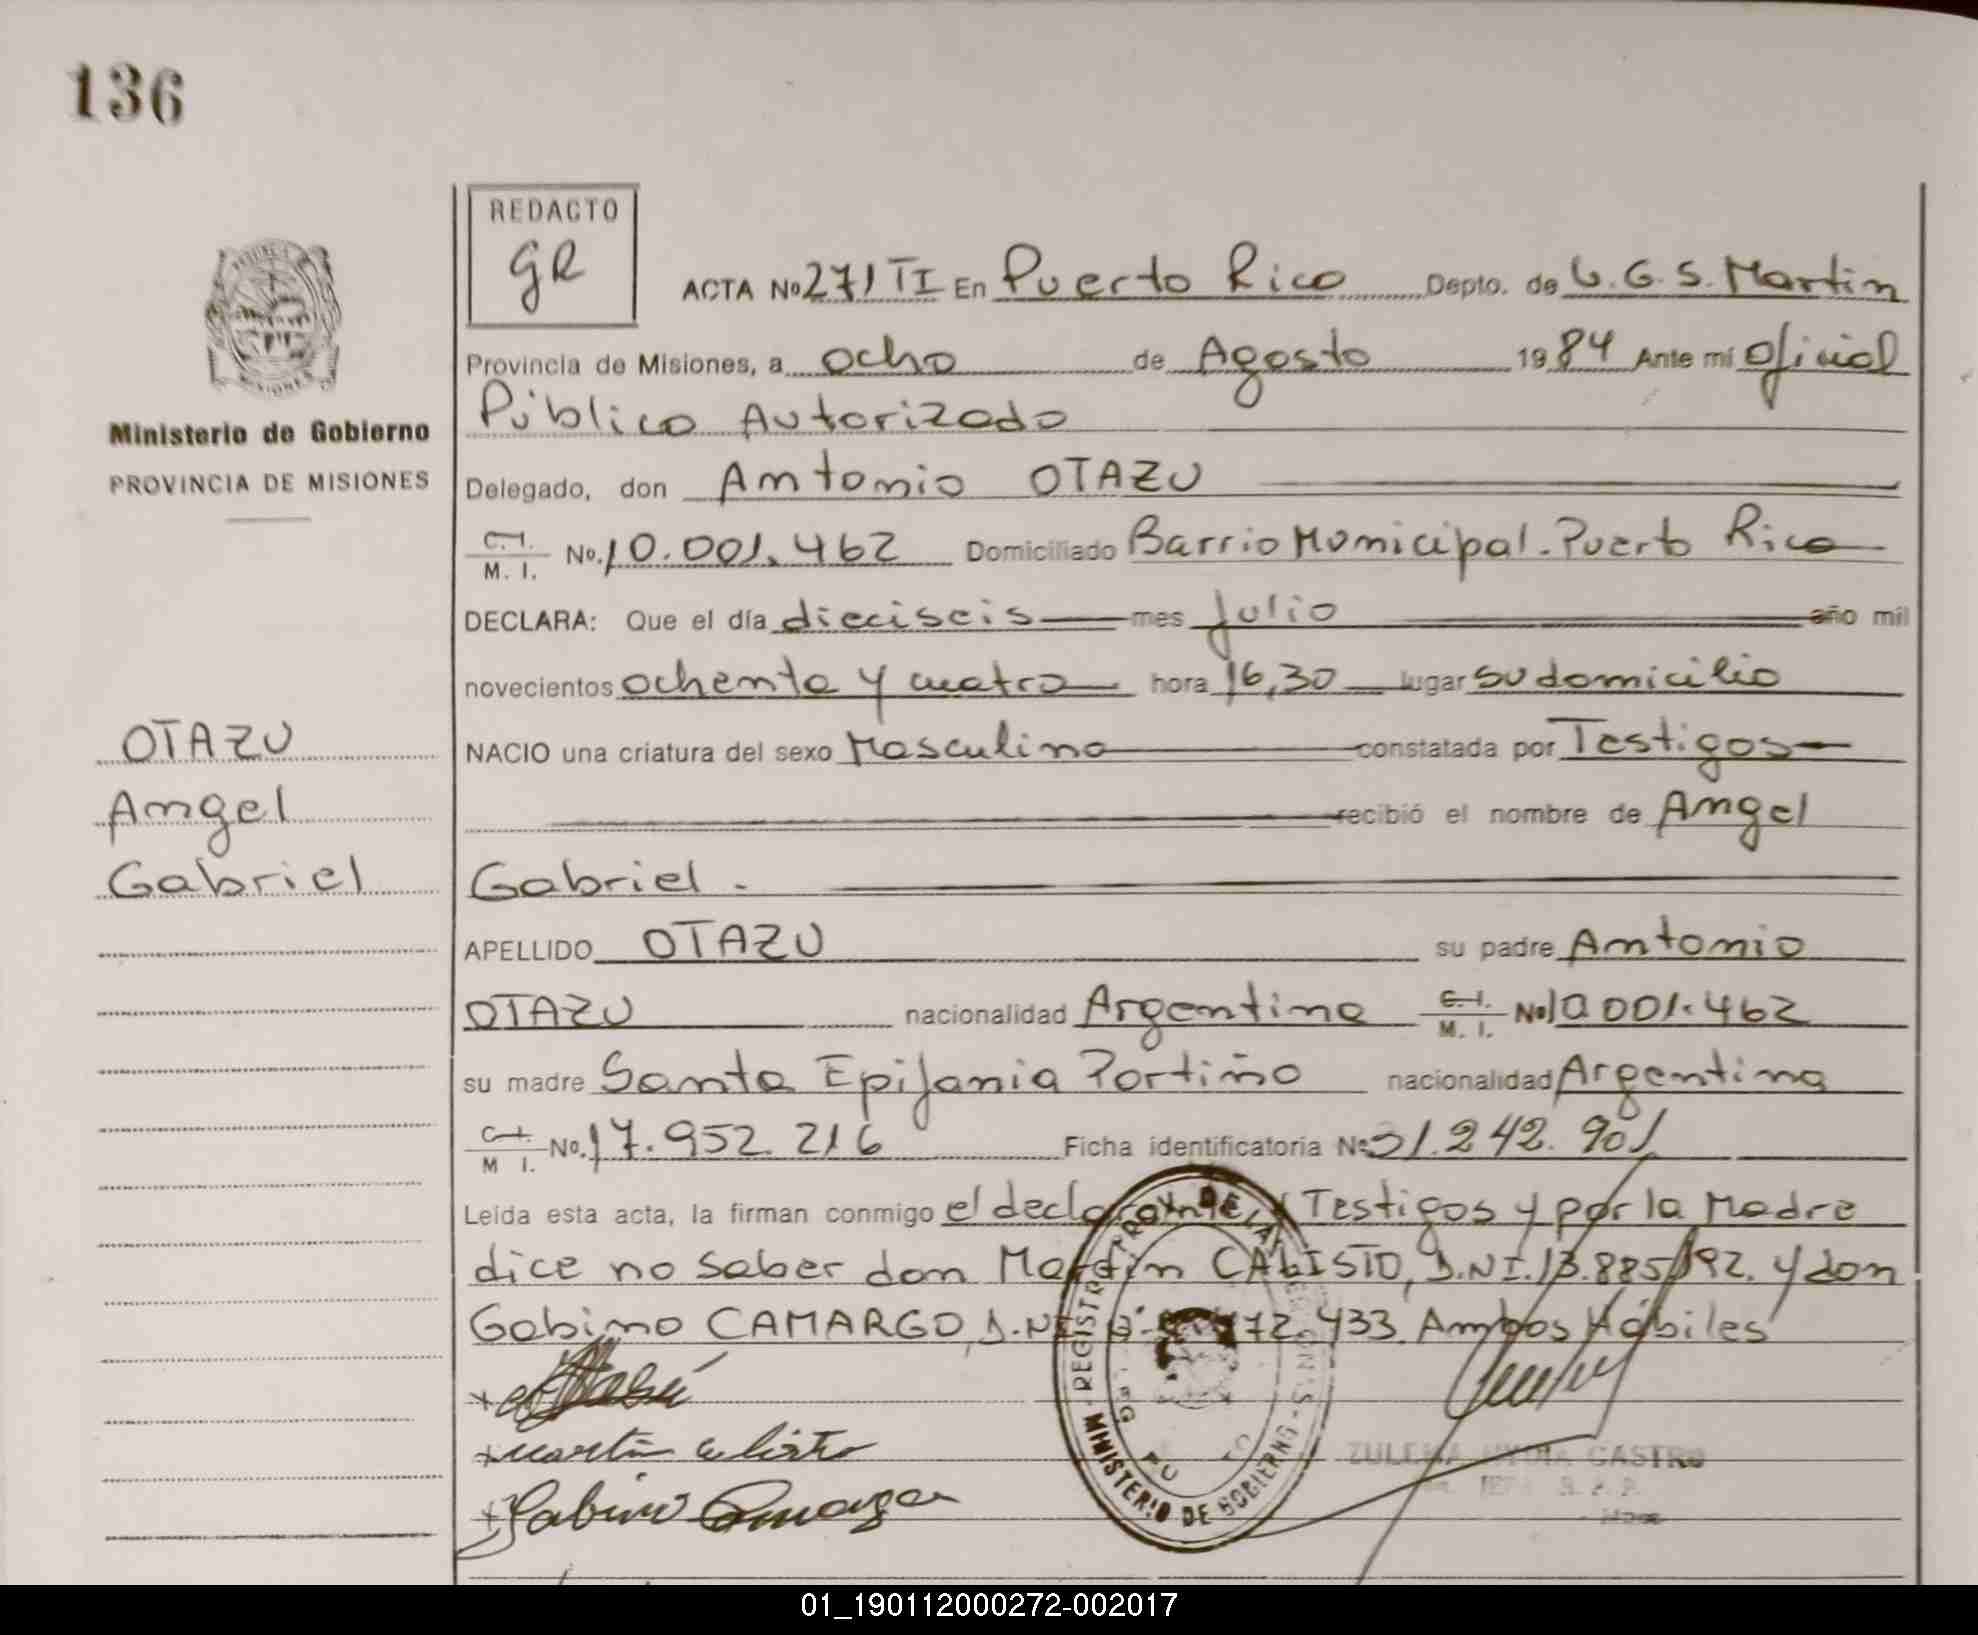 136
REDACTO
GR
ACTA No 271 TI En Puerto Rico Depto. de L. G. S. Martin
Provincia de Misiones, a ocho de Agosto 1984 Ante mi Oficial
Público Autorizado
Ministerio de Gobierno
PROVINCIA DE MISIONES
Delegado, don Antonio OTAZU
C. I. M. I. No. 10.001.462 Domiciliado Barrio Municipal. Puerto Rico
DECLARA: Que el día dieciseis mes Julio año mil
novecientos ochenta y cuatro hora 16,30 lugar su domicilio
OTAZU
Angel
Gabriel
NACIO una criatura del sexo Masculino constatada por Testigos
recibió el nombre de Angel
Gabriel.
APELLIDO OTAZU su padre Antonio
OTAZU nacionalidad Argentina C. I. M. I. No 10.001.462
su madre Santa Epifania Portiño nacionalidad Argentina
C. I. M. I. No. 17.952.216 Ficha identificatoria No 31.242.901
Leída esta acta, la firman conmigo el declarante, Testigos y por la Madre
dice no saber don Martin CALISTO, D.NI. 13.885.192. y don
Gabino CAMARGO, D.NI. 433. Ambos Hábiles
Martin Calisto
Gabino Camargo
REGISTRO DE LAS PERSONAS
MINISTERIO DE GOBIERNO
ZULEMA CASTRO
01_190112000272-002017